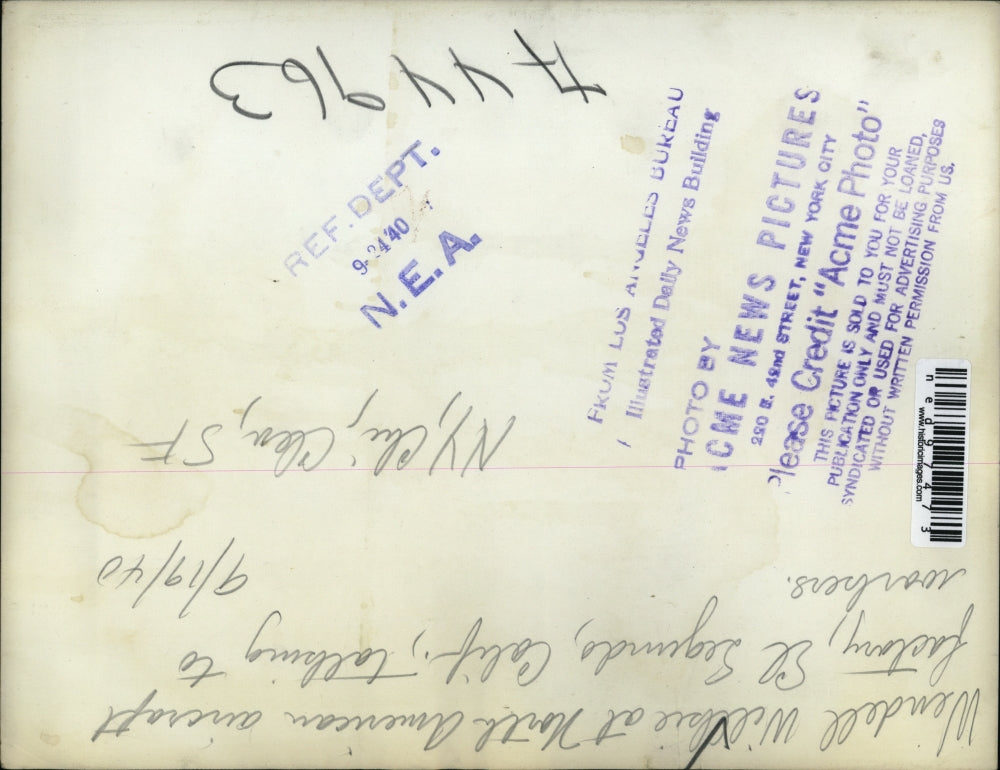 Wendell Willkie at North American aircraft
factory, El Segundo, Calif., talking to
workers.
9/19/40
NY, Chi, Cleve, SF
#44963
REF. DEPT.
9-24'40
N.E.A.
FROM LOS ANGELES BUREAU
Illustrated Daily News Building
PHOTO BY
ACME NEWS PICTURES
220 E. 42nd STREET, NEW YORK CITY
Please Credit "Acme Photo"
THIS PICTURE IS SOLD TO YOU FOR YOUR
PUBLICATION ONLY AND MUST NOT BE LOANED,
SYNDICATED OR USED FOR ADVERTISING PURPOSES
WITHOUT WRITTEN PERMISSION FROM US.
www.historicimages.com
ned97473